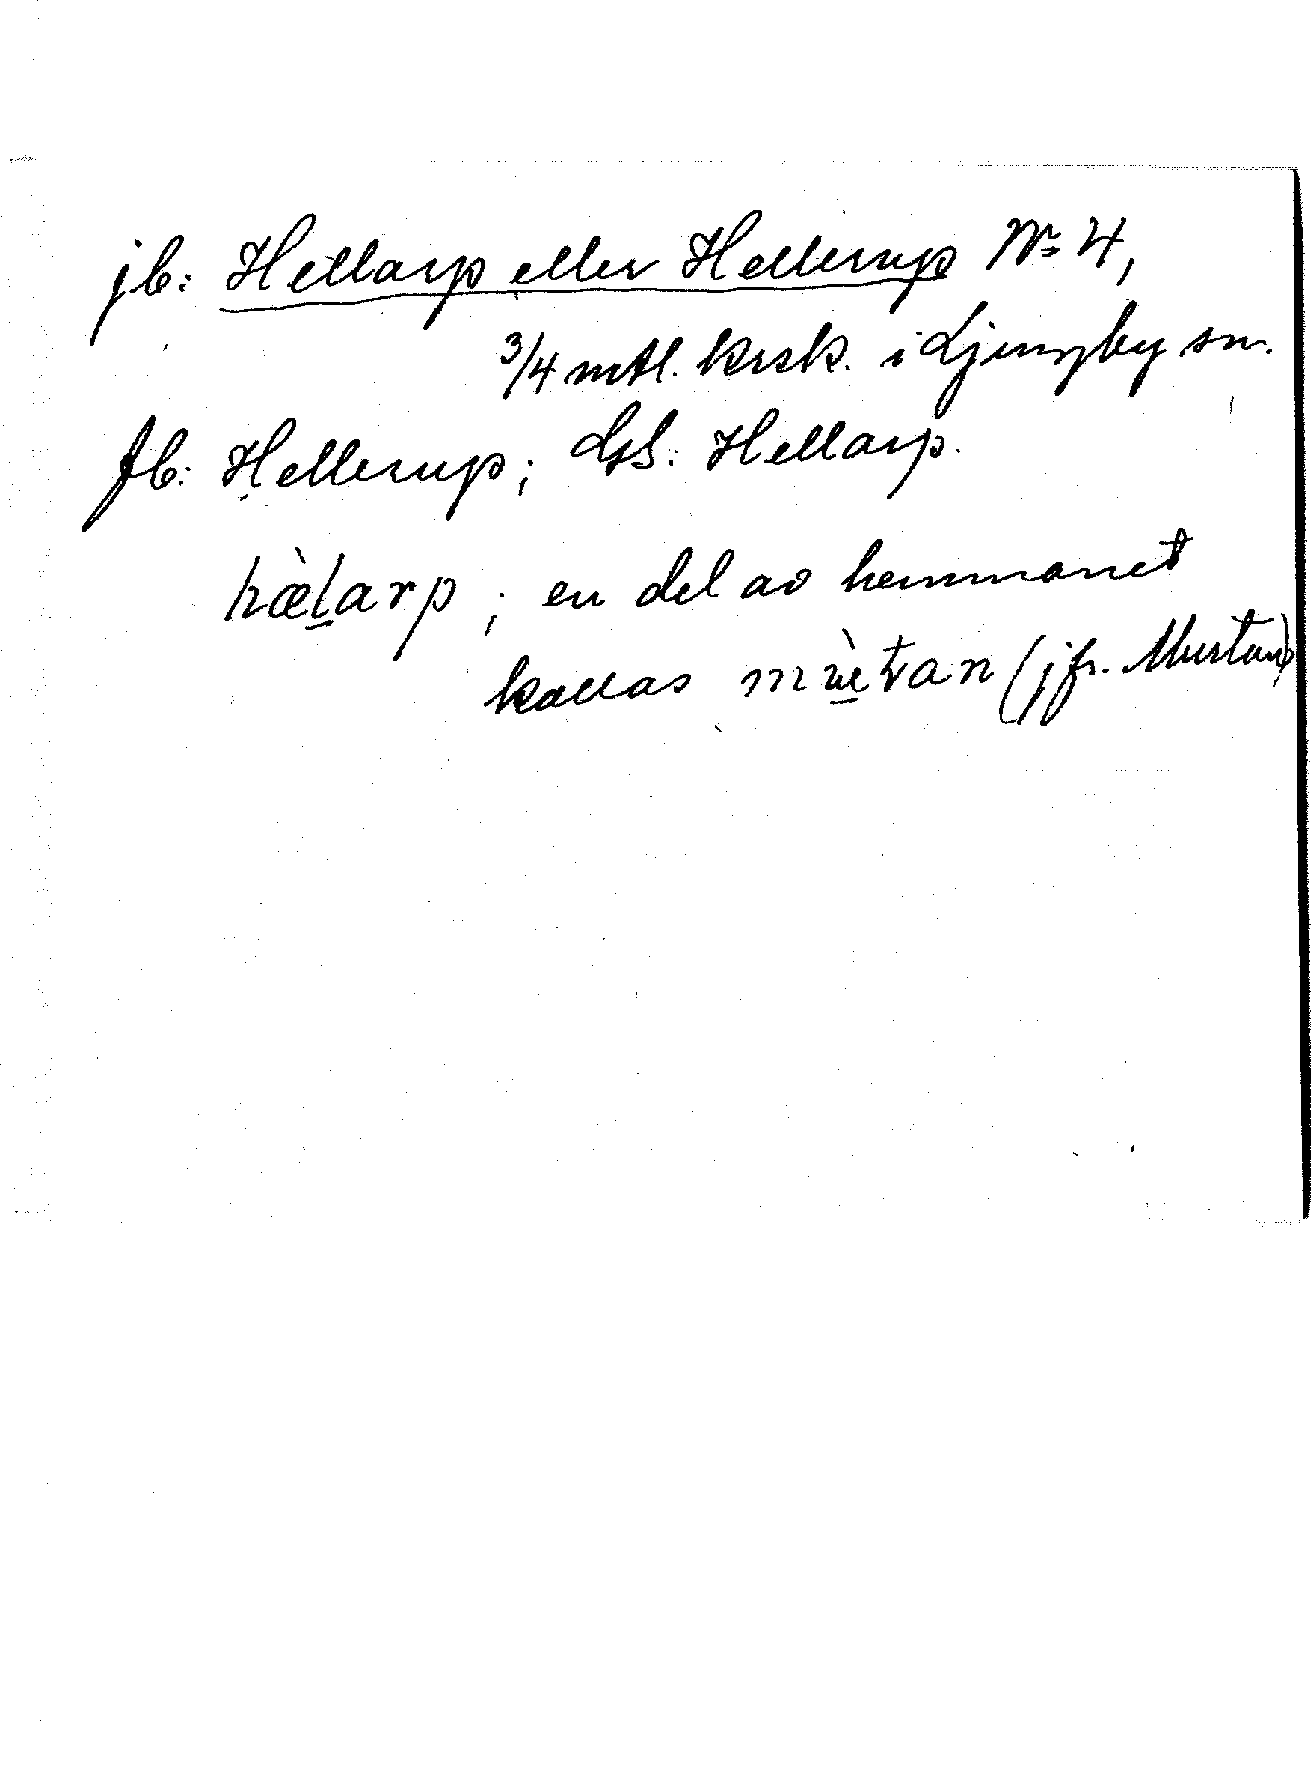 jb: Hellarp eller Hellerup No 4,
3/4 mtl. krsk. i Ljungby sn.
Jb: Hellerup; GS: Hellarp.
hæ̀l̲arp; en del av hemmanet
kallas (jfr. Murtan)